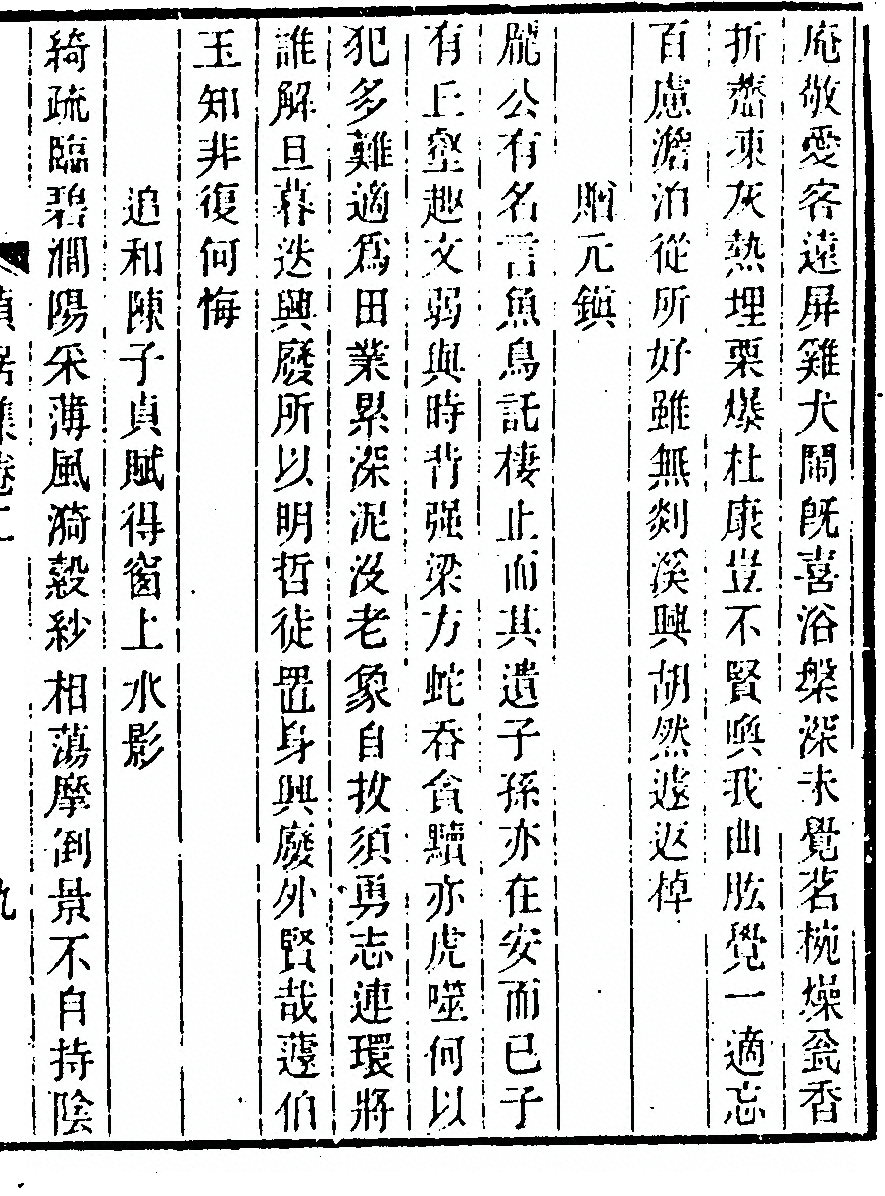 庵敬愛客遠屏雞犬鬧既喜浴槃深未覺茗椀燥瓮香
折虀凍灰熱埋栗爆杜康豈不賢喚我曲肱覺一適忘
百慮澹泊從所好雖無剡溪興胡然遽返棹
贈元鎮
龐公有名言魚鳥託棲止而其遺子孫亦在安而已子
有丘壑趣文弱與時背强梁方蛇吞貪黷亦虎噬何以
犯多難適爲田業累深泥没老象自救須勇志連環將
誰解旦暮迭興廢所以明哲徒置身興廢外賢哉蘧伯
玉知非復何悔
追和陳子貞賦得窗上水影
綺疏臨碧澗陽采薄風漪縠紗相蕩摩倒景不自持陰
貞居集卷二
九